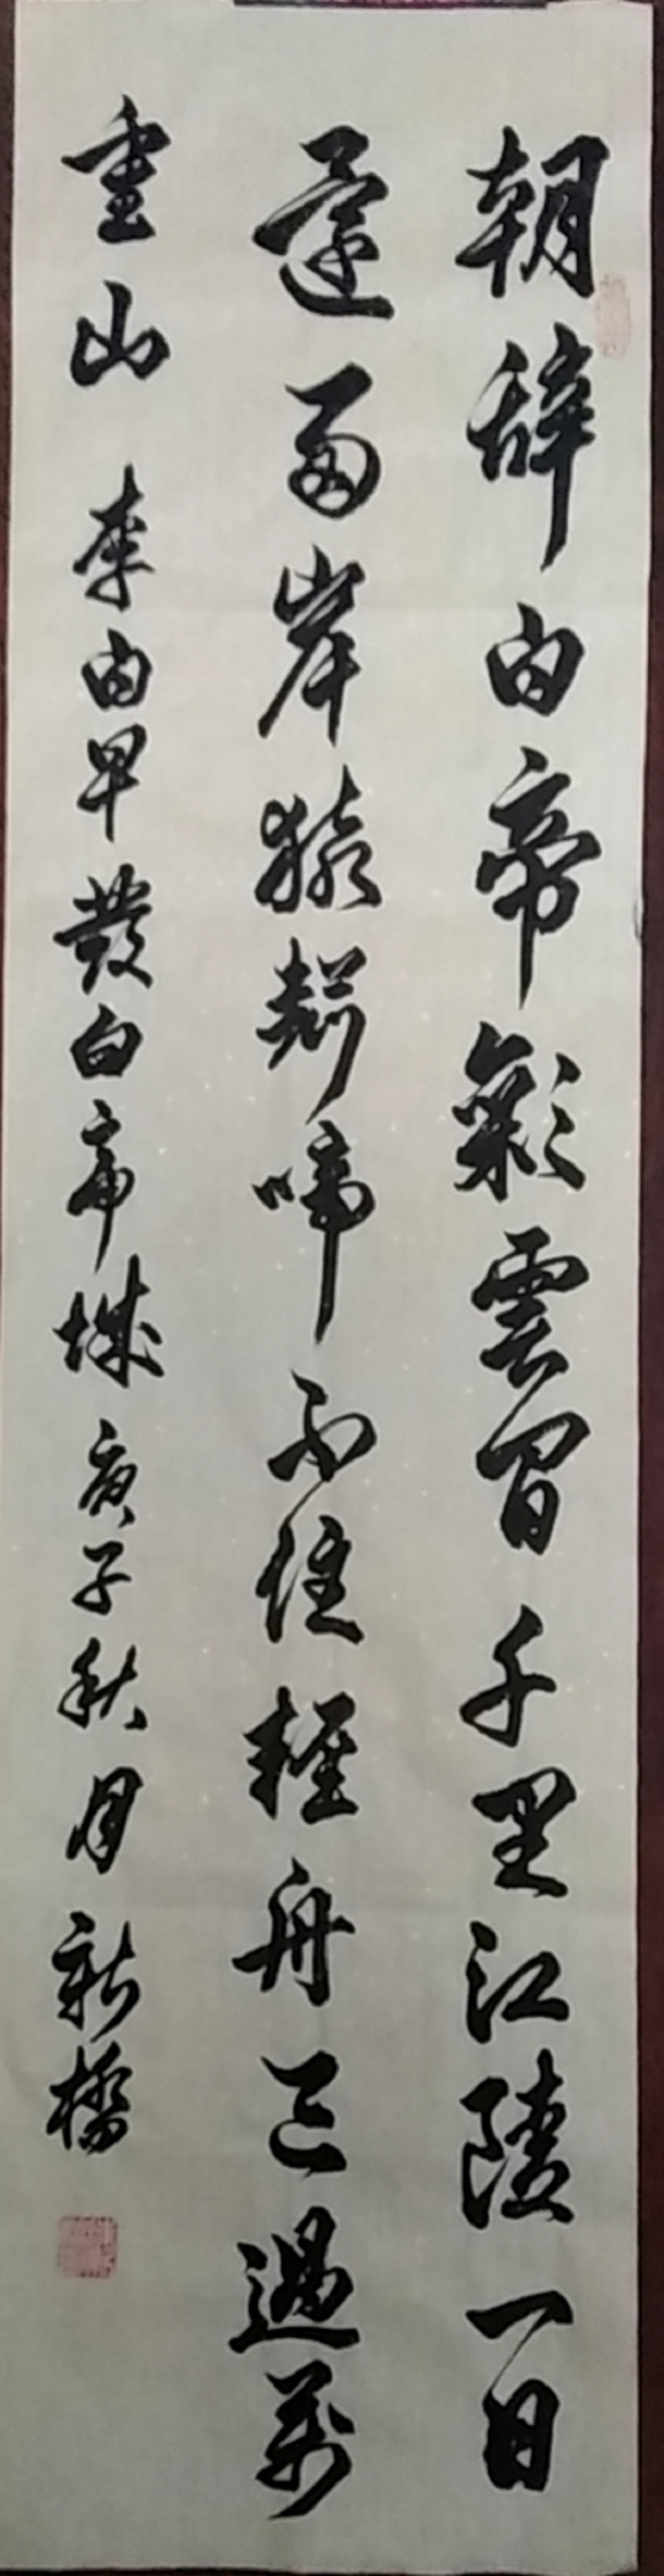 朝辞白帝彩雲間千里江陵一日
還兩岸猿聲啼不住輕舟已過萬
重山 李白早發白帝城 庚子秋月 新橋